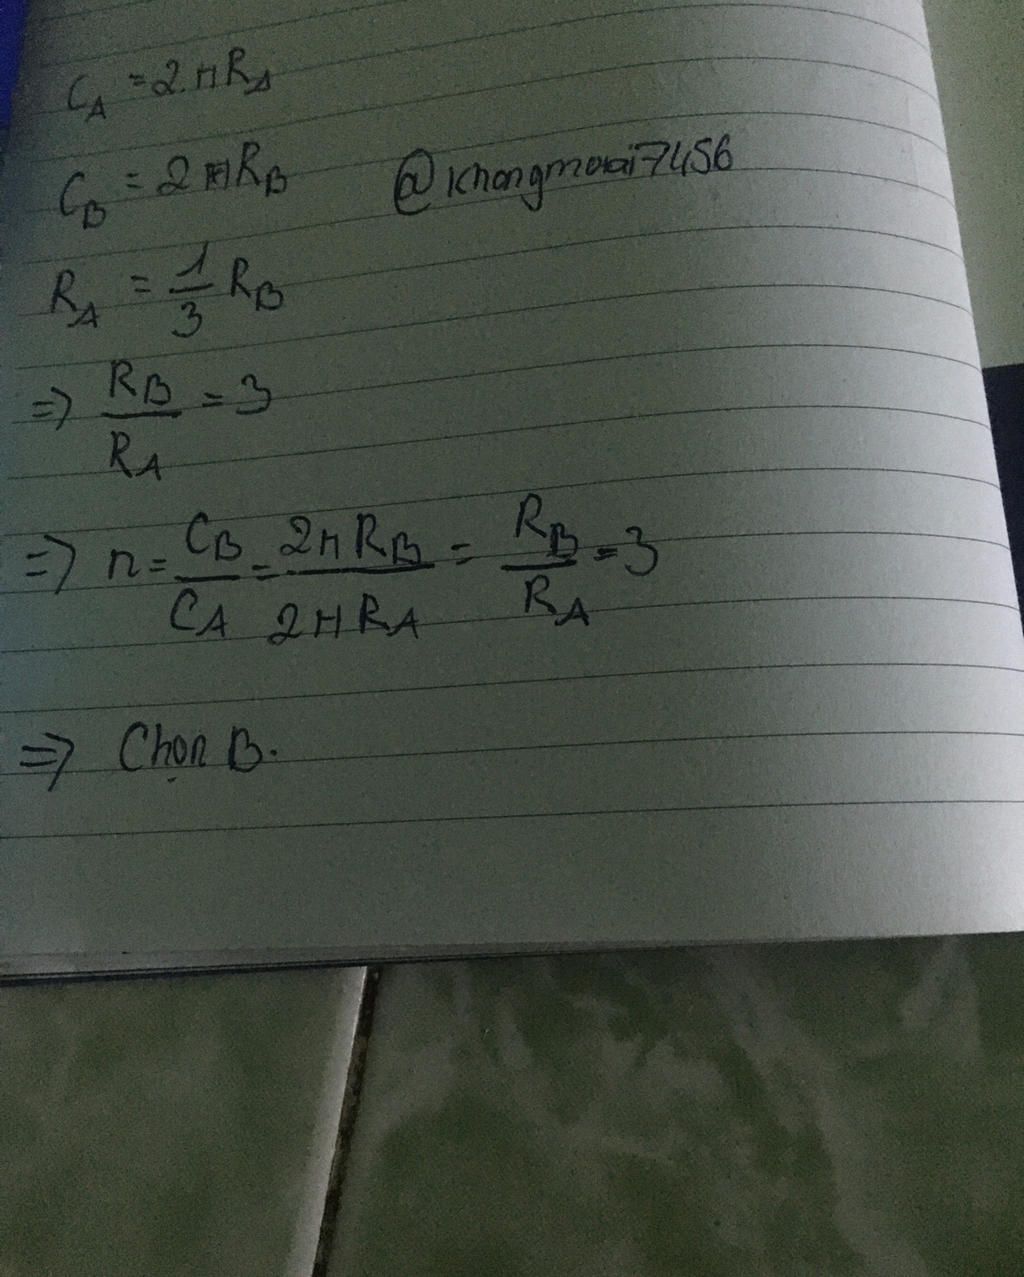 C_A = 2.πR_A
C_B = 2πR_B @khongmoai7456
R_A = 1/3 R_B
=> R_B/R_A = 3
=> n = C_B/C_A = 2πR_B/2πR_A = R_B/R_A = 3
=> Chọn B.